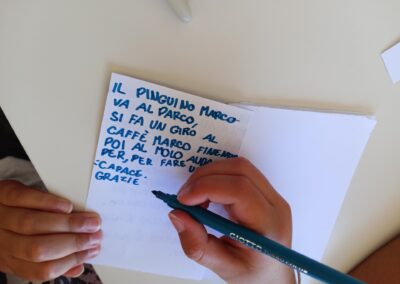 IL PINGUINO MARCO-
VA AL PARCO,
SI FA UN GIRO AL
CAFFÈ MARCO FINENDO
POI AL MOLO AUDA
PER, PER FARE U
-CAPACE.
GRAZIE
GIOTTO